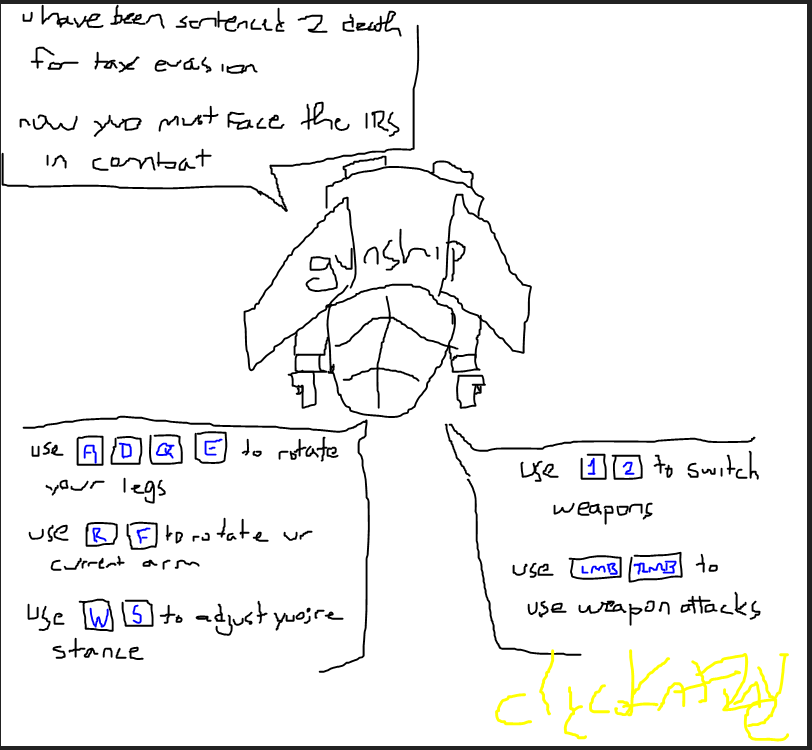 u have been sentenced 2 death
for tax evasion
now yuo must Face the IRS
in combat
gunship
use A D Q E to rotate
your legs
use R F to rotate ur
current arm
use W S to adjust yuoire
stance
use 1 2 to switch
weapons
use LMB RMB to
use weapon attacks